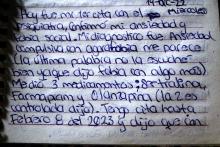 14-dic-22
Miércoles
Hoy fue mi 1er cita con el
Psiquiatra, informé mi ansiedad y
fobia social. Mi diagnostico fue Ansiedad
compulsiva con agorafobia me parece
(la última palabra no la escuche
bien ya que dijo fobia con algo más)
Medicó 3 medicamentos: Sertralina,
Farmapram y Olanzapina (la 2 es
controlada dijo). Tengo cita hasta
Febrero 8 del 2023 y dijo que con